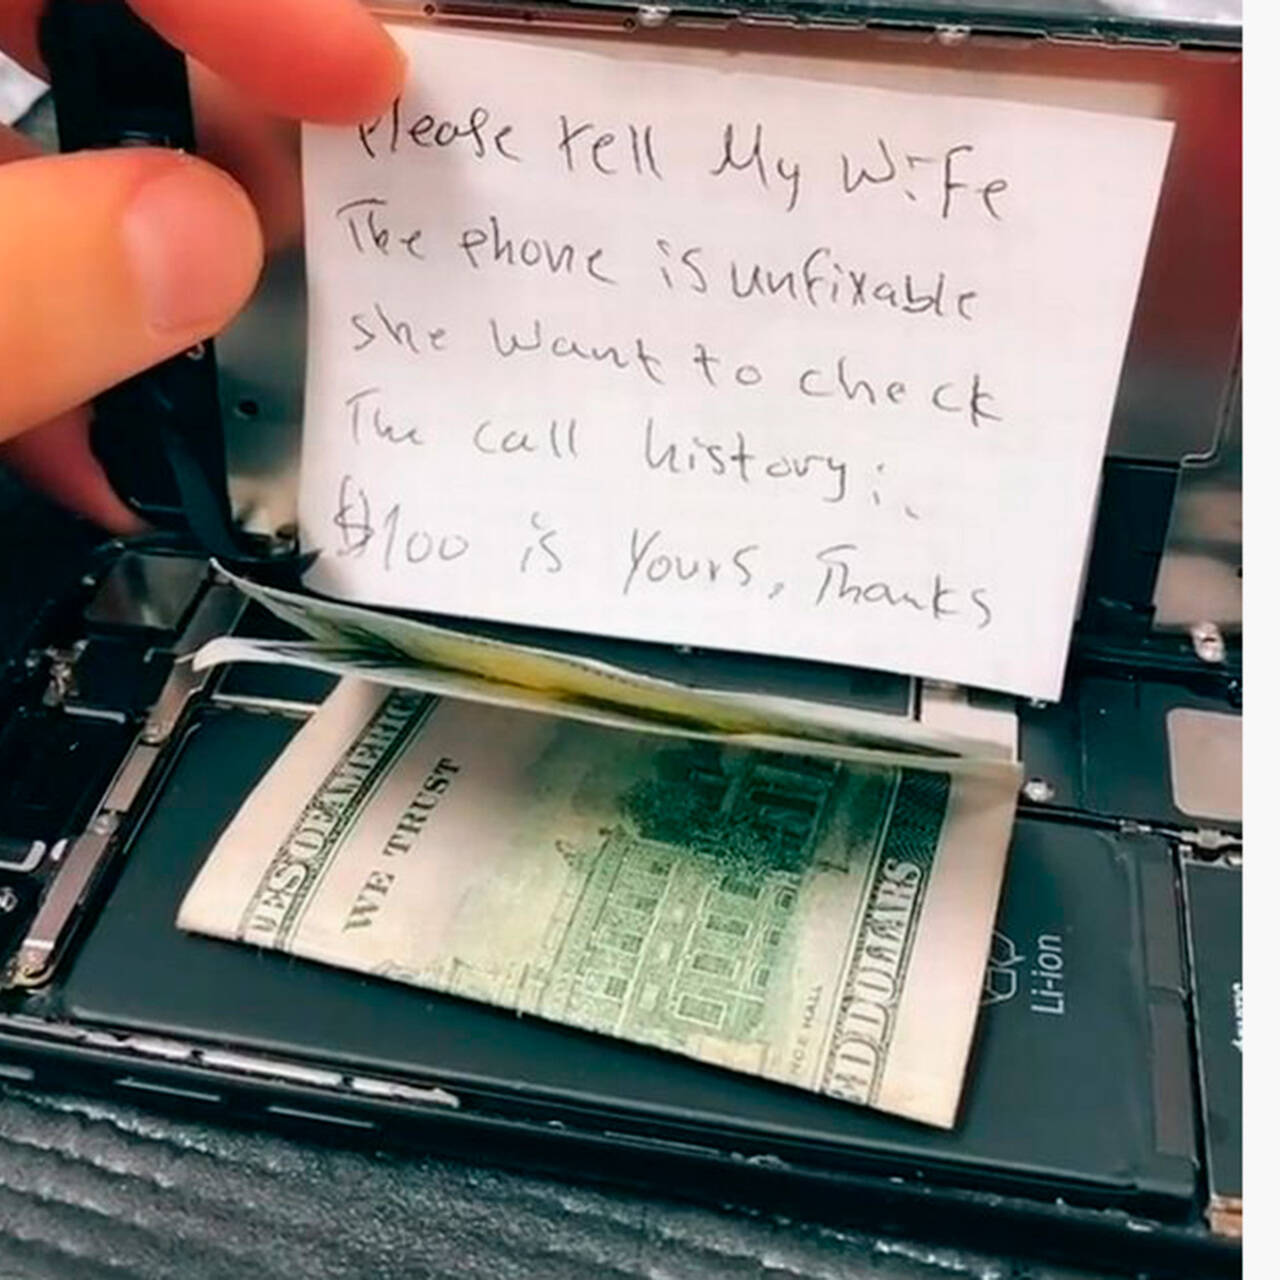 Please tell My Wife
The phone is unfixable
she want to check
The call history:
$100 is Yours, Thanks
TES OF AMERIC
WE TRUST
NCE HALL
D DOLLARS
Li-ion